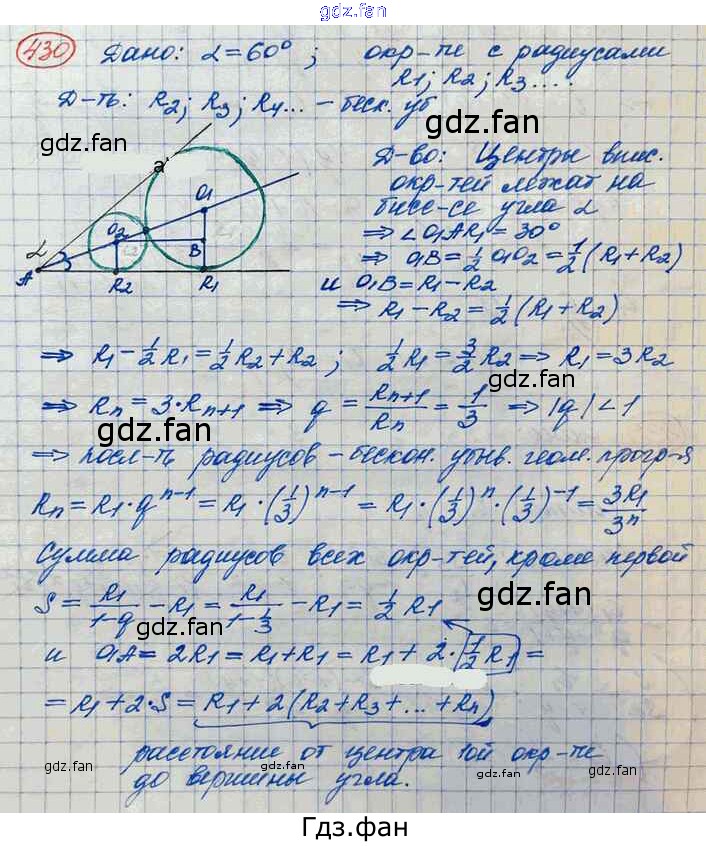 gdz.fan
430 Дано: α = 60° ; окр-ти с радиусами
R1; R2; R3 ....
Д-ть: R2; R3; R4... – беск. уб
gdz.fan
gdz.fan
Д-во: Центры впис.
окр-тей лежат на
бисс-се угла α
⇒ ∠O1AR1 = 30°
⇒ O1B = 1/2 O1O2 = 1/2 (R1 + R2)
и O1B = R1 – R2
⇒ R1 – R2 = 1/2 (R1 + R2)
a
O1
O2
B
α
A
R2
R1
gdz.fan
⇒ R1 – 1/2 R1 = 1/2 R2 + R2 ; 1/2 R1 = 3/2 R2 ⇒ R1 = 3R2
gdz.fan
⇒ Rn = 3·Rn+1 ⇒ q = Rn+1/Rn = 1/3 ⇒ |q| < 1
gdz.fan
gdz.fan
⇒ посл-ть радиусов – бескон. убыв. геом. прогр-я
Rn = R1·q^(n-1) = R1·(1/3)^(n-1) = R1·(1/3)^n·(1/3)^(-1) = 3R1/3^n
gdz.fan
Сумма радиусов всех окр-тей, кроме первой
S = R1/(1-q) – R1 = R1/(1-1/3) – R1 = 1/2 R1
gdz.fan
gdz.fan
и O1A = 2R1 = R1 + R1 = R1 + 2·1/2 R1 =
= R1 + 2·S = R1 + 2(R2 + R3 + ... + Rn)
gdz.fan
расстояние от центра 1ой окр-ти
до вершины угла.
gdz.fan
gdz.fan
gdz.fan
Гдз.фан